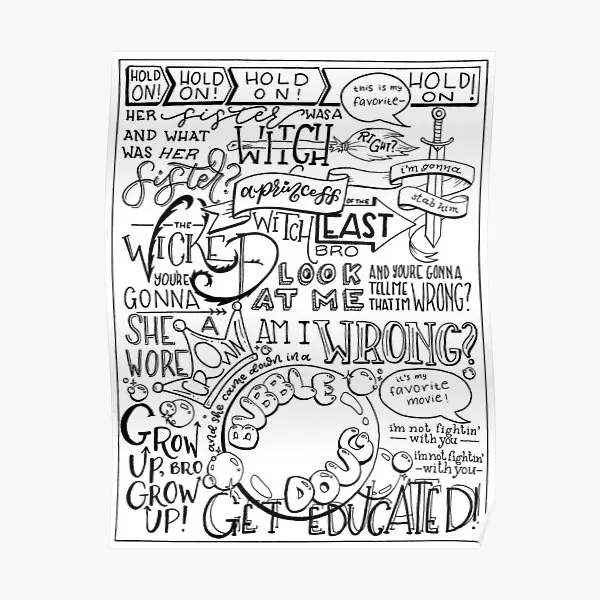 HOLD ON! HOLD ON! HOLD ON! HOLD ON!
this is my favorite-
HER sister WAS A
WITCH
RIGHT?
AND WHAT
WAS HER
sister?
i'm gonna
stab him
a princess
THE
WICKED
WITCH
OF THE
EAST
BRO
YOU'RE
GONNA
LOOK
AT ME
AND YOU'RE GONNA
TELL ME
THAT I'M WRONG?
AM I WRONG?
SHE
WORE
A
CROWN
and she came down in a
BUBBLE
DOUG
it's my
favorite
movie!
i'm not fightin'
with you
i'm not fightin'
-with you-
GROW
UP, BRO
GROW
UP!
GET EDUCATED!